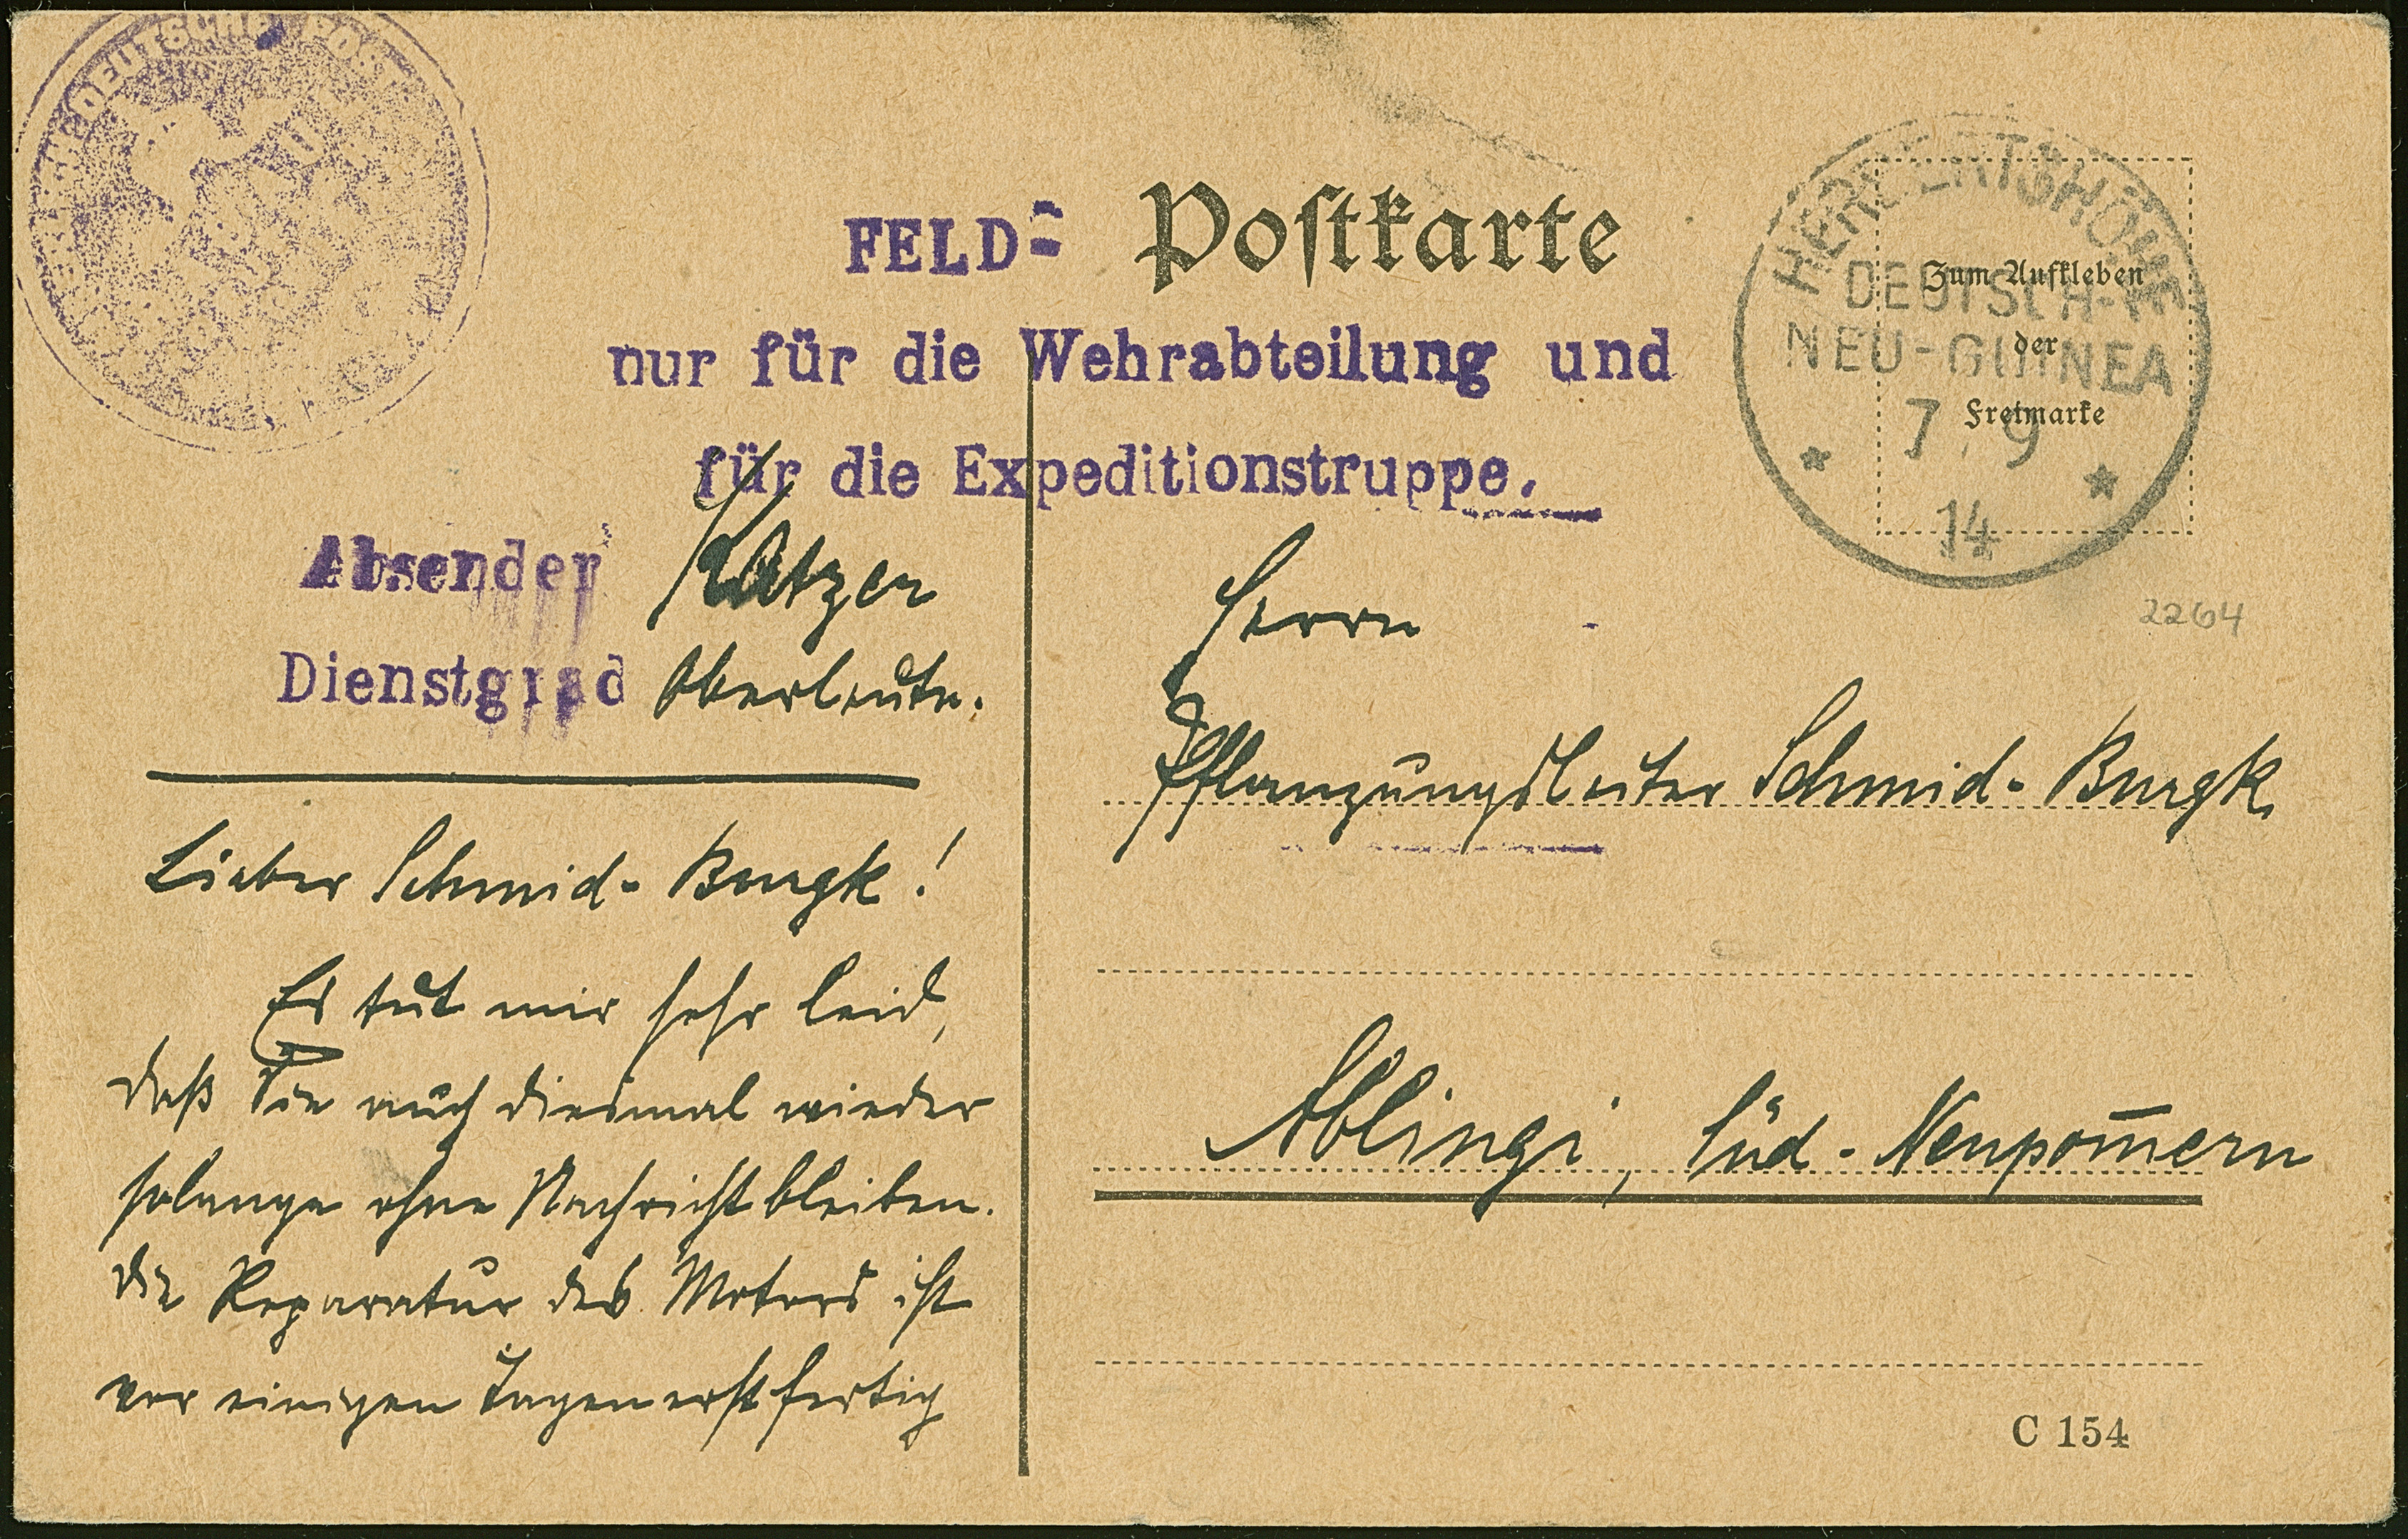 DEUTSCHE POST
FELD= Postkarte
nur für die Wehrabteilung und
für die Expeditionstruppe.
HERBERTSHÖHE
DEUTSCH-
NEU-GUINEA
7 9
14
Zum Aufkleben
der
Freimarke
2264
Absender Katzer
Dienstgrad Oberleutn.
Herrn
Pflanzungsleiter Schmid-Burgk
Ablingi, Süd-Neupom̄ern
C 154
Lieber Schmid-Burgk!
Es tut mir sehr leid,
daß Sie auch diesmal wieder
solange ohne Nachricht bleiben.
Die Reparatur des Motors ist
vor einigen Tagen erst fertig